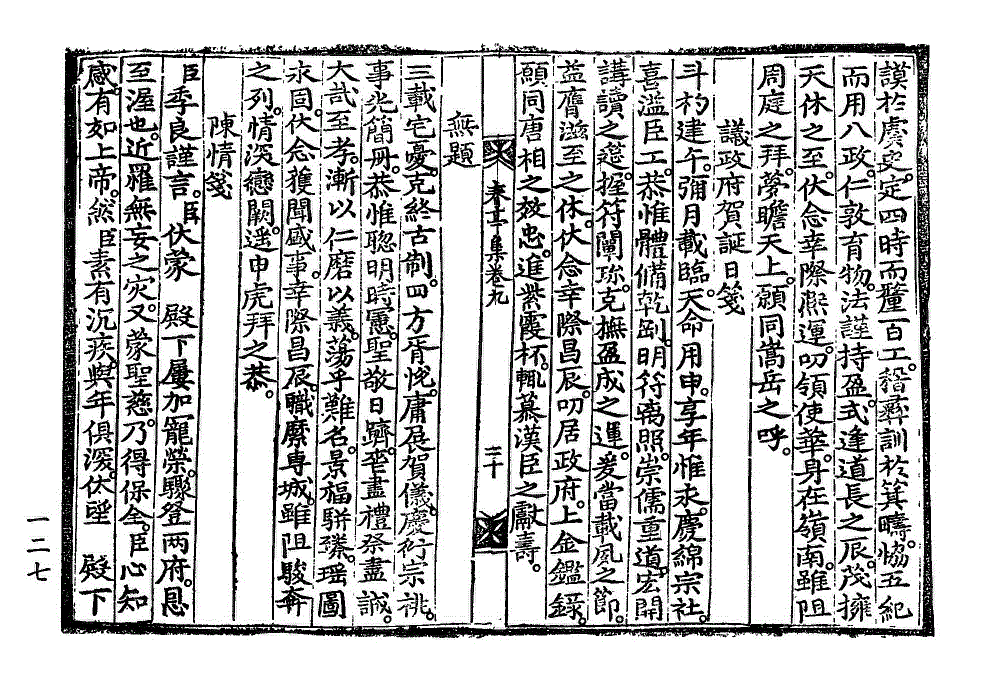 謨於虞史。定四時而釐百工。稽彝訓於箕疇。協五紀
而用八政。仁敦育物。法謹持盈。式逢道長之辰。茂擁
天休之至。伏念幸際熙運。叨領使華。身在嶺南。雖阻
周庭之拜。夢瞻天上。願同嵩岳之呼。
議政府賀誕日箋
斗杓建午。彌月載臨。天命用申。享年惟永。慶綿宗社。
喜溢臣工。恭惟體備乾剛。明符离照。崇儒重道。宏開
講讀之筵。握符闡珎。克撫盈成之運。爰當載夙之節。
益膺滋至之休。伏念幸際昌辰。叨居政府。上金鑑錄。
願同唐相之效忠。進紫霞杯。輒慕漢臣之獻壽。
春亭集卷九
三十
無題
三載宅憂。克終古制。四方胥悅。庸展賀儀。慶衍宗祧。
事光簡冊。恭惟聡明時憲。聖敬日躋。喪盡禮祭盡誠。
大哉至孝。漸以仁磨以義。蕩乎難名。景福騈臻。瑶圖
永固。伏念獲聞盛事。幸際昌辰。職縻専城。雖阻駿奔
之列。情深戀闕。遥申虎拜之恭。
陳情箋
臣季良謹言。臣伏蒙 殿下屢加寵榮。驟登两府。恩
至渥也。近羅無妄之灾。又蒙聖慈。乃得保全。臣心知
感。有如上帝。然臣素有沉疾。與年俱深。伏望 殿下
一二七